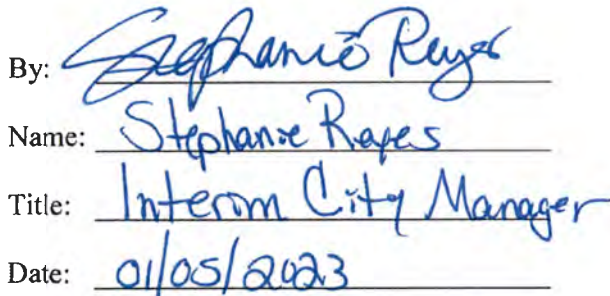 By: Stephanie Reyes
Name: Stephanie Reyes
Title: Interim City Manager
Date: 01/05/2023